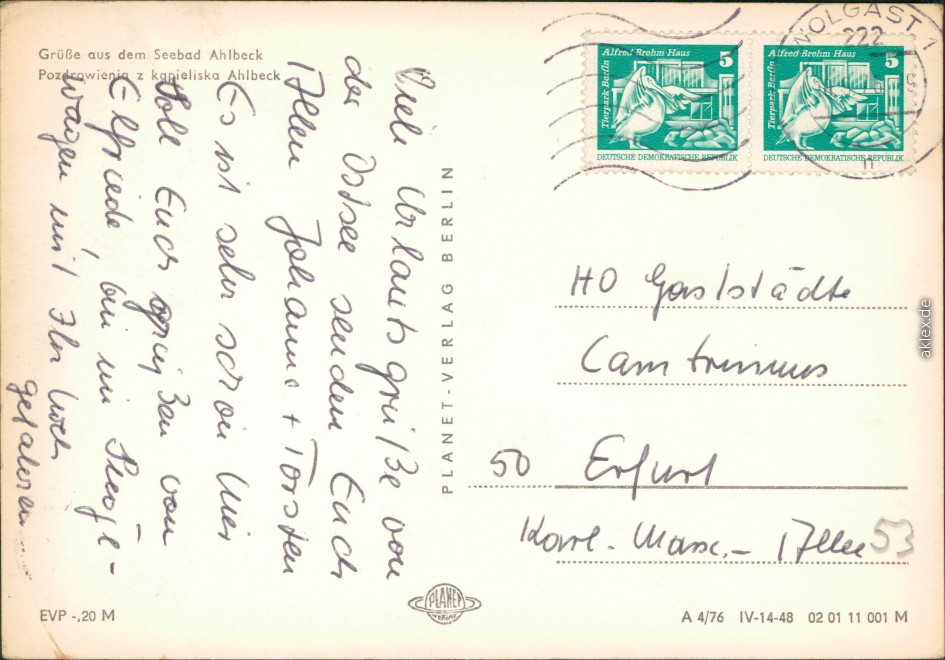 Grüße aus dem Seebad Ahlbeck
Pozdrowienia z kąpieliska Ahlbeck
Viele Urlaubsgrüße von
der Ostsee senden Euch
Allen Johanna + Torsten
Es ist sehr schön hier
Soll Euch grüßen von
Elfriede, bin im
wagen mit Ihr hoch
gefahren
PLANET-VERLAG BERLIN
WOLGAST 1
222
Alfred-Brehm-Haus
5
Tierpark Berlin
DEUTSCHE DEMOKRATISCHE REPUBLIK
Alfred-Brehm-Haus
5
Tierpark Berlin
DEUTSCHE DEMOKRATISCHE REPUBLIK
HO Gaststädte
50 Erfurt
Karl-Marx-Allee 53
EVP -,20 M
PLANET
A 4/76 IV-14-48 02 01 11 001 M
aklex.de